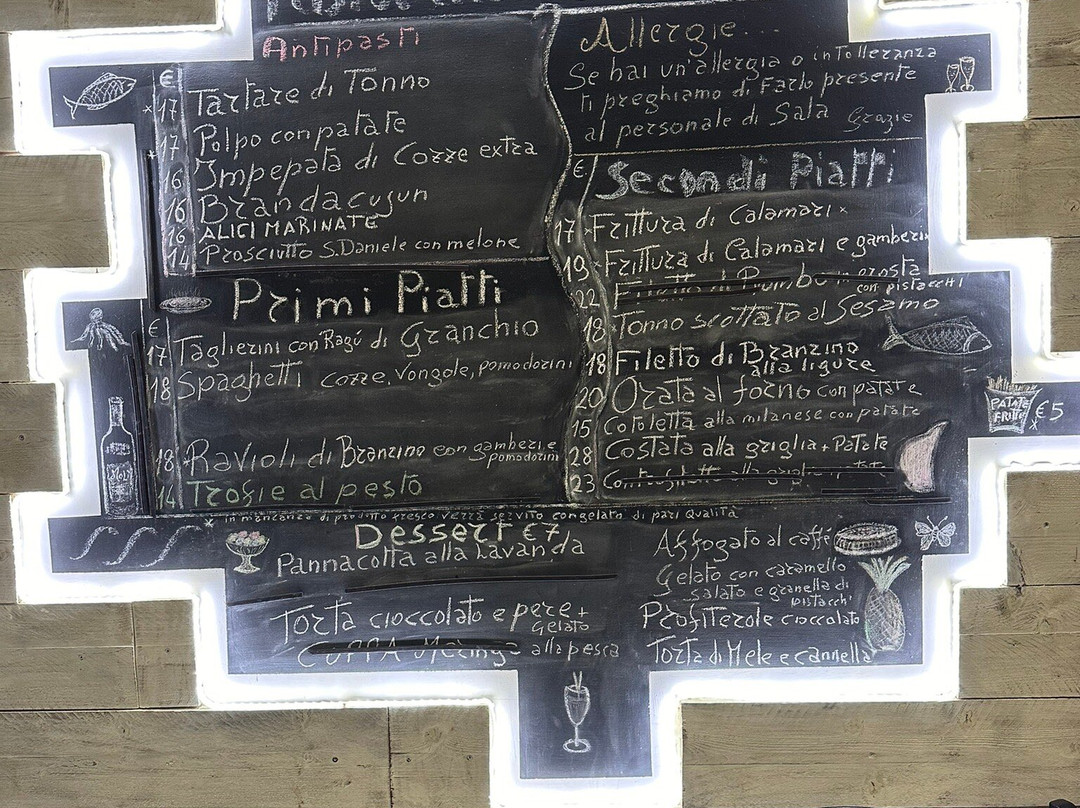 Antipasti
€
*17 Tartare di Tonno
17 Polpo con patate
*16 Impepata di Cozze extra
16 Brandacujun
16 ALICI MARINATE
14 Prosciutto S.Daniele con melone
Primi Piatti
€
17 Taglierini con Ragú di Granchio
18 Spaghetti cozze, vongole, pomodorini
18 Ravioli di Branzino con gamberi e pomodorini
14 Trofie al pesto
Allergie...
Se hai un'allergia o intolleranza
ti preghiamo di Farlo presente
al personale di Sala
Grazie
€ Secondi Piatti
17 Frittura di Calamari *
19 Frittura di Calamari e gamberi
22 Filetto di Rombo in crosta
con pistacchi
18 Tonno scottato al Sesamo
18 Filetto di Branzino
alla ligure
20 Orata al forno con patate
15 Cotoletta alla milanese con patate
28 Costata alla griglia + Patate
23
PATATE
FRITTE
* €5
* in mancanza di prodotto fresco verrà servito congelato di pari qualità
Dessert €7
Pannacotta alla Lavanda
Torta cioccolato e pere +
Gelato
COPPA Meringa alla pesca
Affogato al caffé
Gelato con caramello
salato e granella di
pistacchi
Profiterole cioccolato
Torta di Mele e cannella